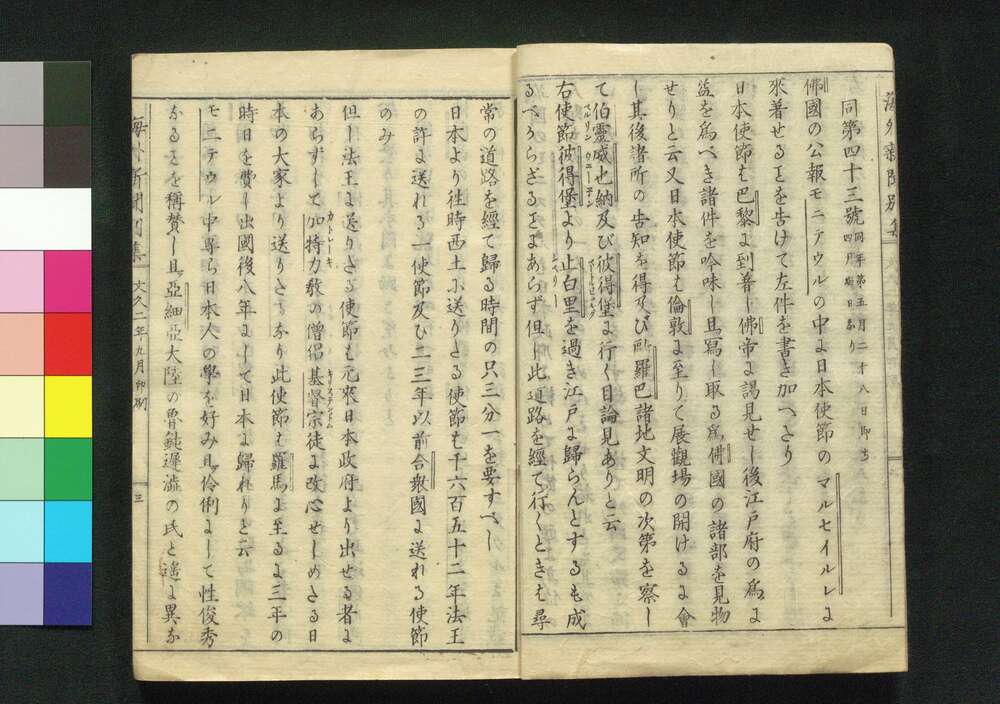 同第四十三號 同年第五月二十八日即吉四月晦日なり
佛國の公報モニテウルの中よ日本使節のマルセイルレよ
來着せるヿを告けて左件を書き加へたり
日本使節も巴黎よ到着し佛帝よ謁見せし後江戸府の爲よ
益を爲べき諸件を吟味し且寫し取る爲佛國の諸部を見物
せりと云又日本使節も倫敦よ至りて展觀場の開けるよ會
し其後諸所の告知を得及び歐羅巴諸地文明の次第を察し
て伯靈威也納及び彼得堡よ行く目論見ありと云
右使節彼得堡より止白里を過き江戸よ歸らんとするも成
るべからざるヿよあらず但し此道路を經て行くときも尋
常の道路を經て歸る時間の只三分一を要すべし
日本より往時西土に送りたる使節も千六百五十二年法王
の許よ送れる一使節及び二三年以前合衆國よ送れる使節
のみ
但し法王よ送りたる使節も元來日本政府より出せる者よ
あらずして加特力教の僧侶基督宗徒よ改心せしめたる日
本の大家より送りたるなり此使節も羅馬よ至るよ三年の
時日を費し出國後八年よして日本よ歸れりと云
モニテウル中專ら日本人の學を好み且伶俐よして性俊秀
なるヿを稱賛し且亞細亞大陸の魯鈍遲澁の氏と遙よ異な
海外新聞別集 文久二年九月印刷 三